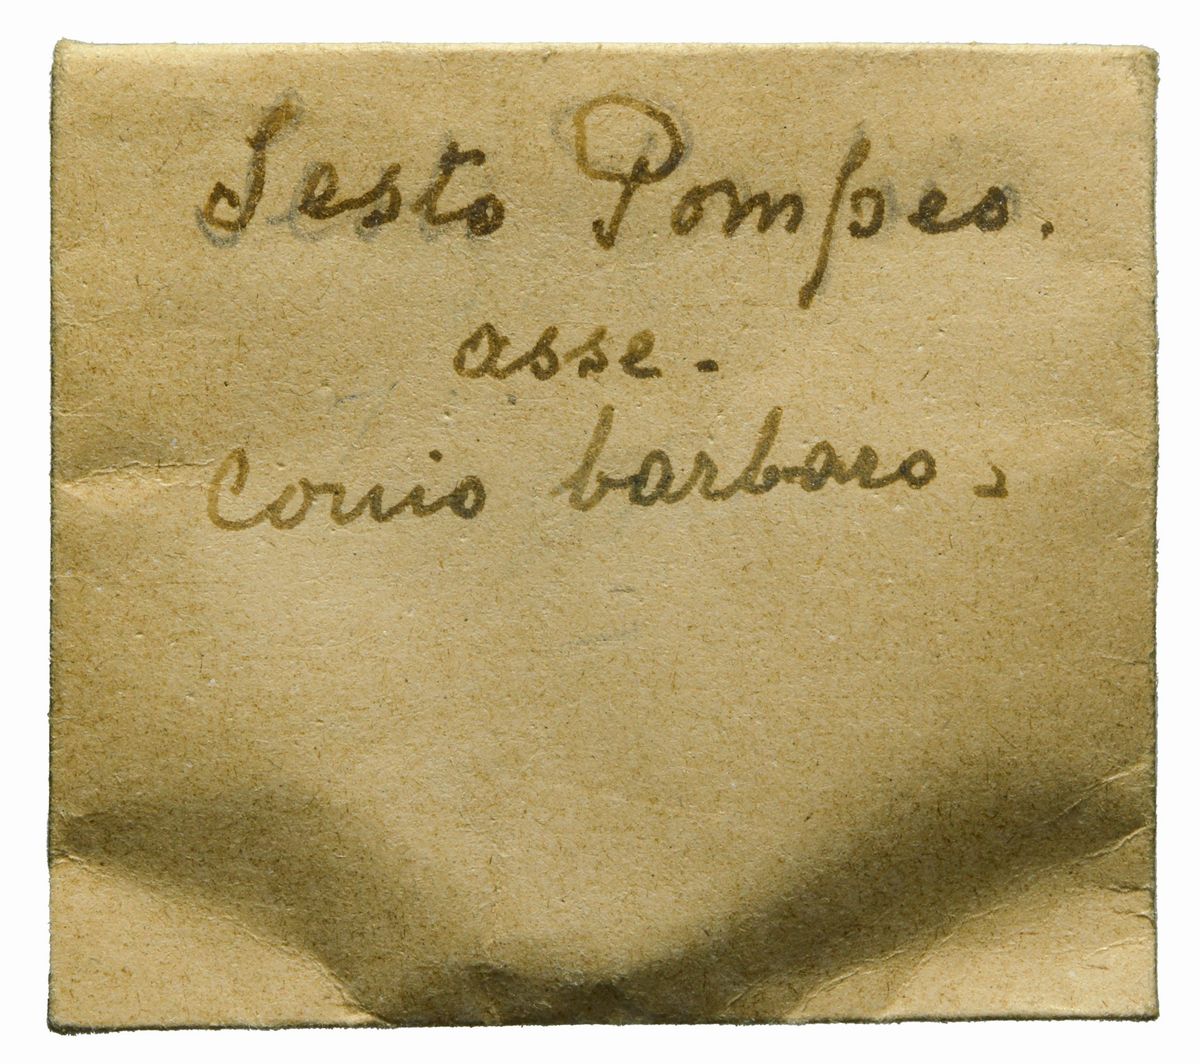 Sesto Pompeo.
asse -
Conio barbaro -